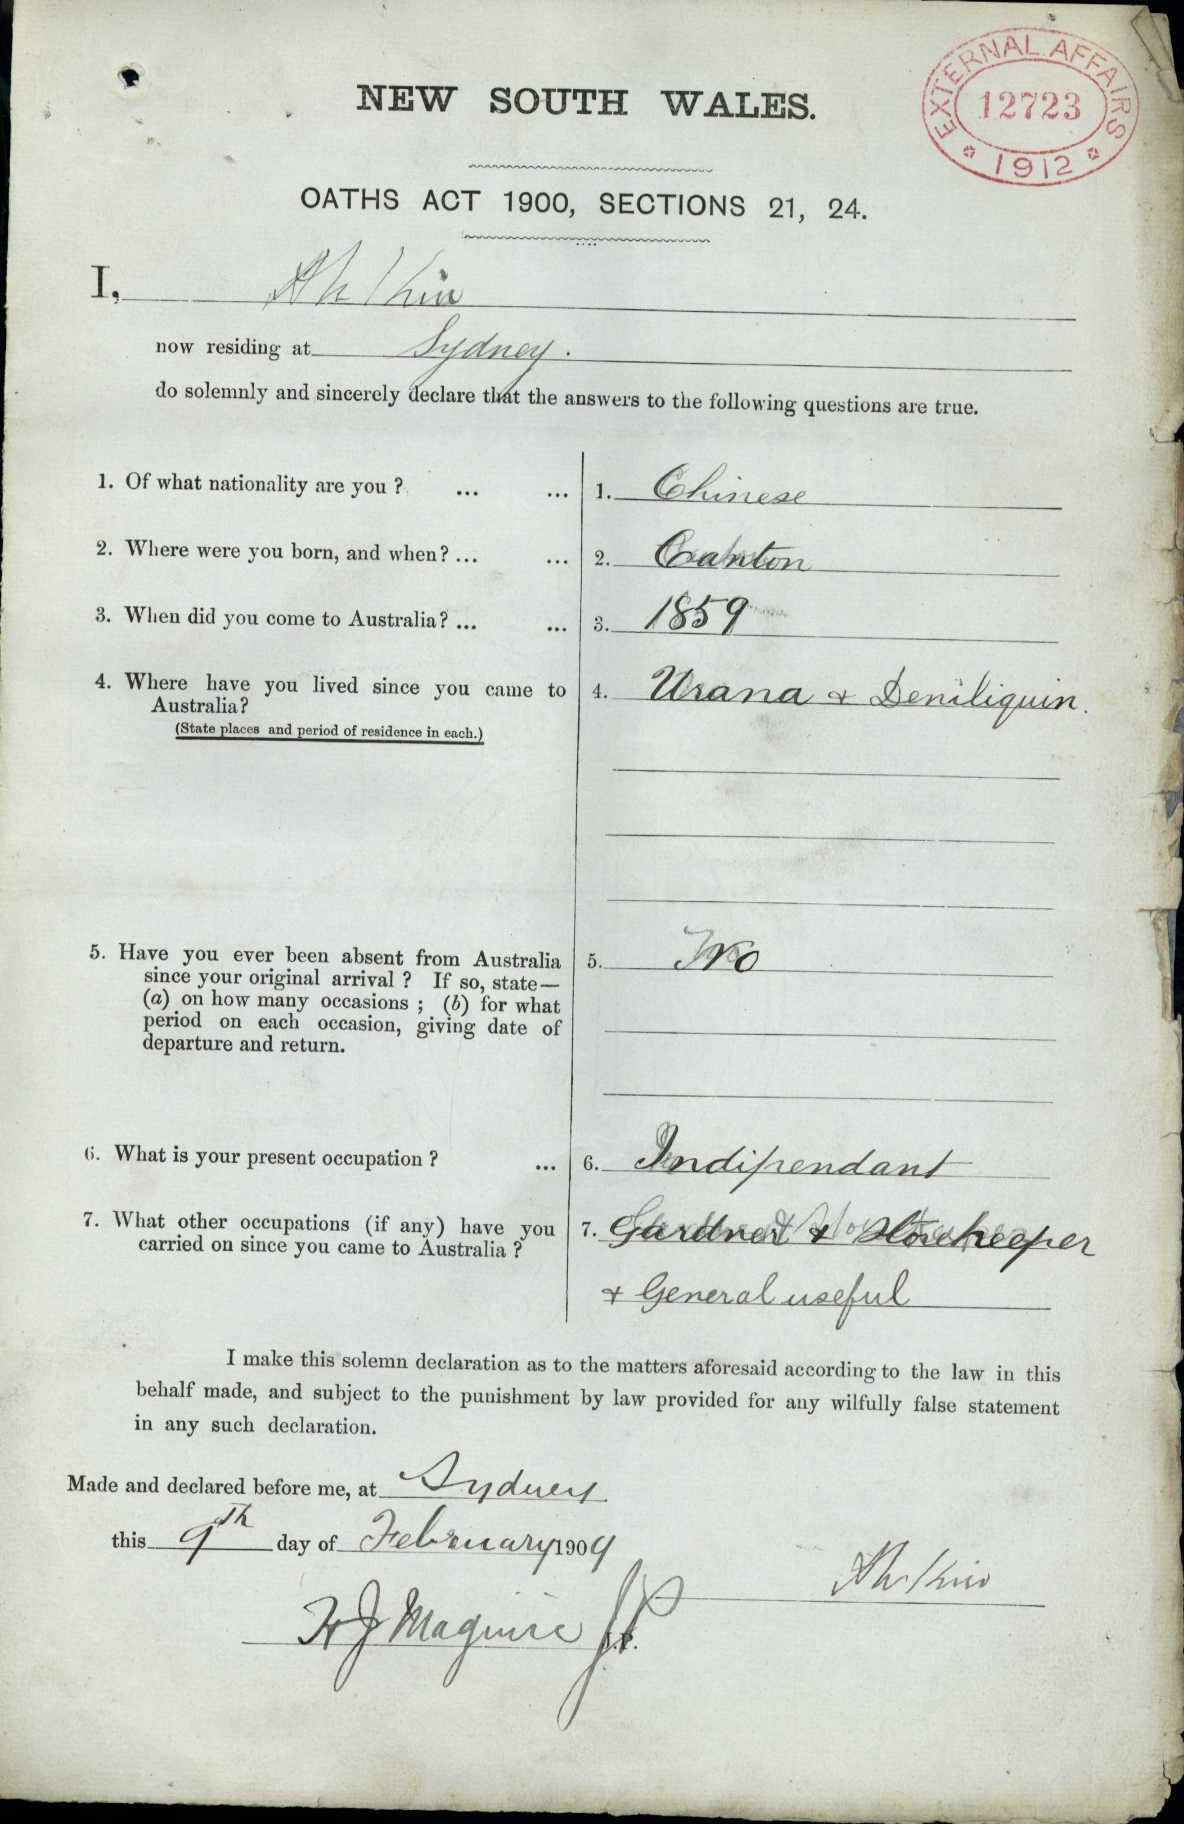 EXTERNAL AFFAIRS
12723
1912
NEW SOUTH WALES.
OATHS ACT 1900, SECTIONS 21, 24.
I, Ah Kin
now residing at Sydney.
do solemnly and sincerely declare that the answers to the following questions are true.
1. Of what nationality are you ? ... ... 1. Chinese
2. Where were you born, and when? ... ... 2. Canton
3. When did you come to Australia? ... ... 3. 1859
4. Where have you lived since you came to 4. Urana & Deniliquin.
Australia?
(State places and period of residence in each.)
5. Have you ever been absent from Australia 5. No
since your original arrival ? If so, state—
(a) on how many occasions ; (b) for what
period on each occasion, giving date of
departure and return.
6. What is your present occupation ? ... 6. Indipendant
7. What other occupations (if any) have you 7. Gardner & Storekeeper
carried on since you came to Australia ?
& General useful
I make this solemn declaration as to the matters aforesaid according to the law in this
behalf made, and subject to the punishment by law provided for any wilfully false statement
in any such declaration.
Made and declared before me, at Sydney
this 9th day of February 1909
Ah Kin
H J Maguire JP
J.P.